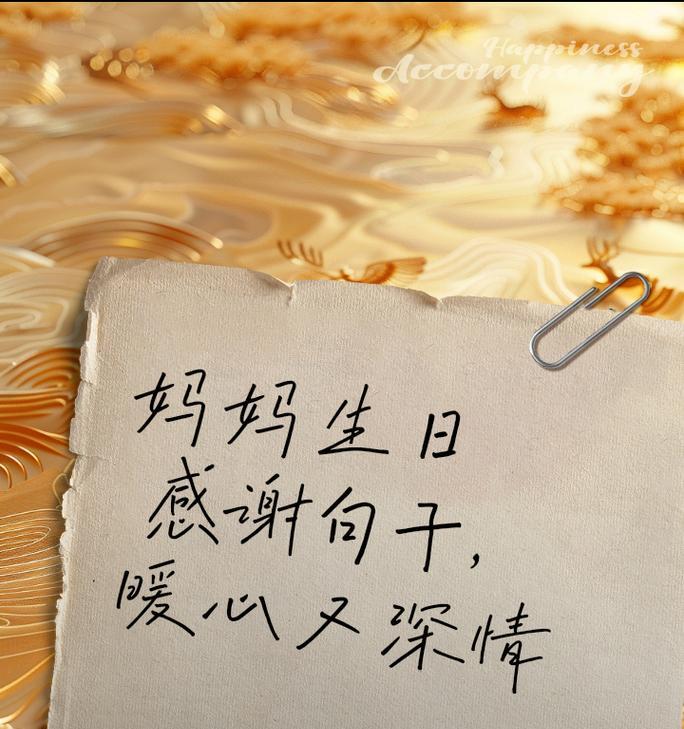 Happiness
Accompany
妈妈生日
感谢句子,
暖心又深情